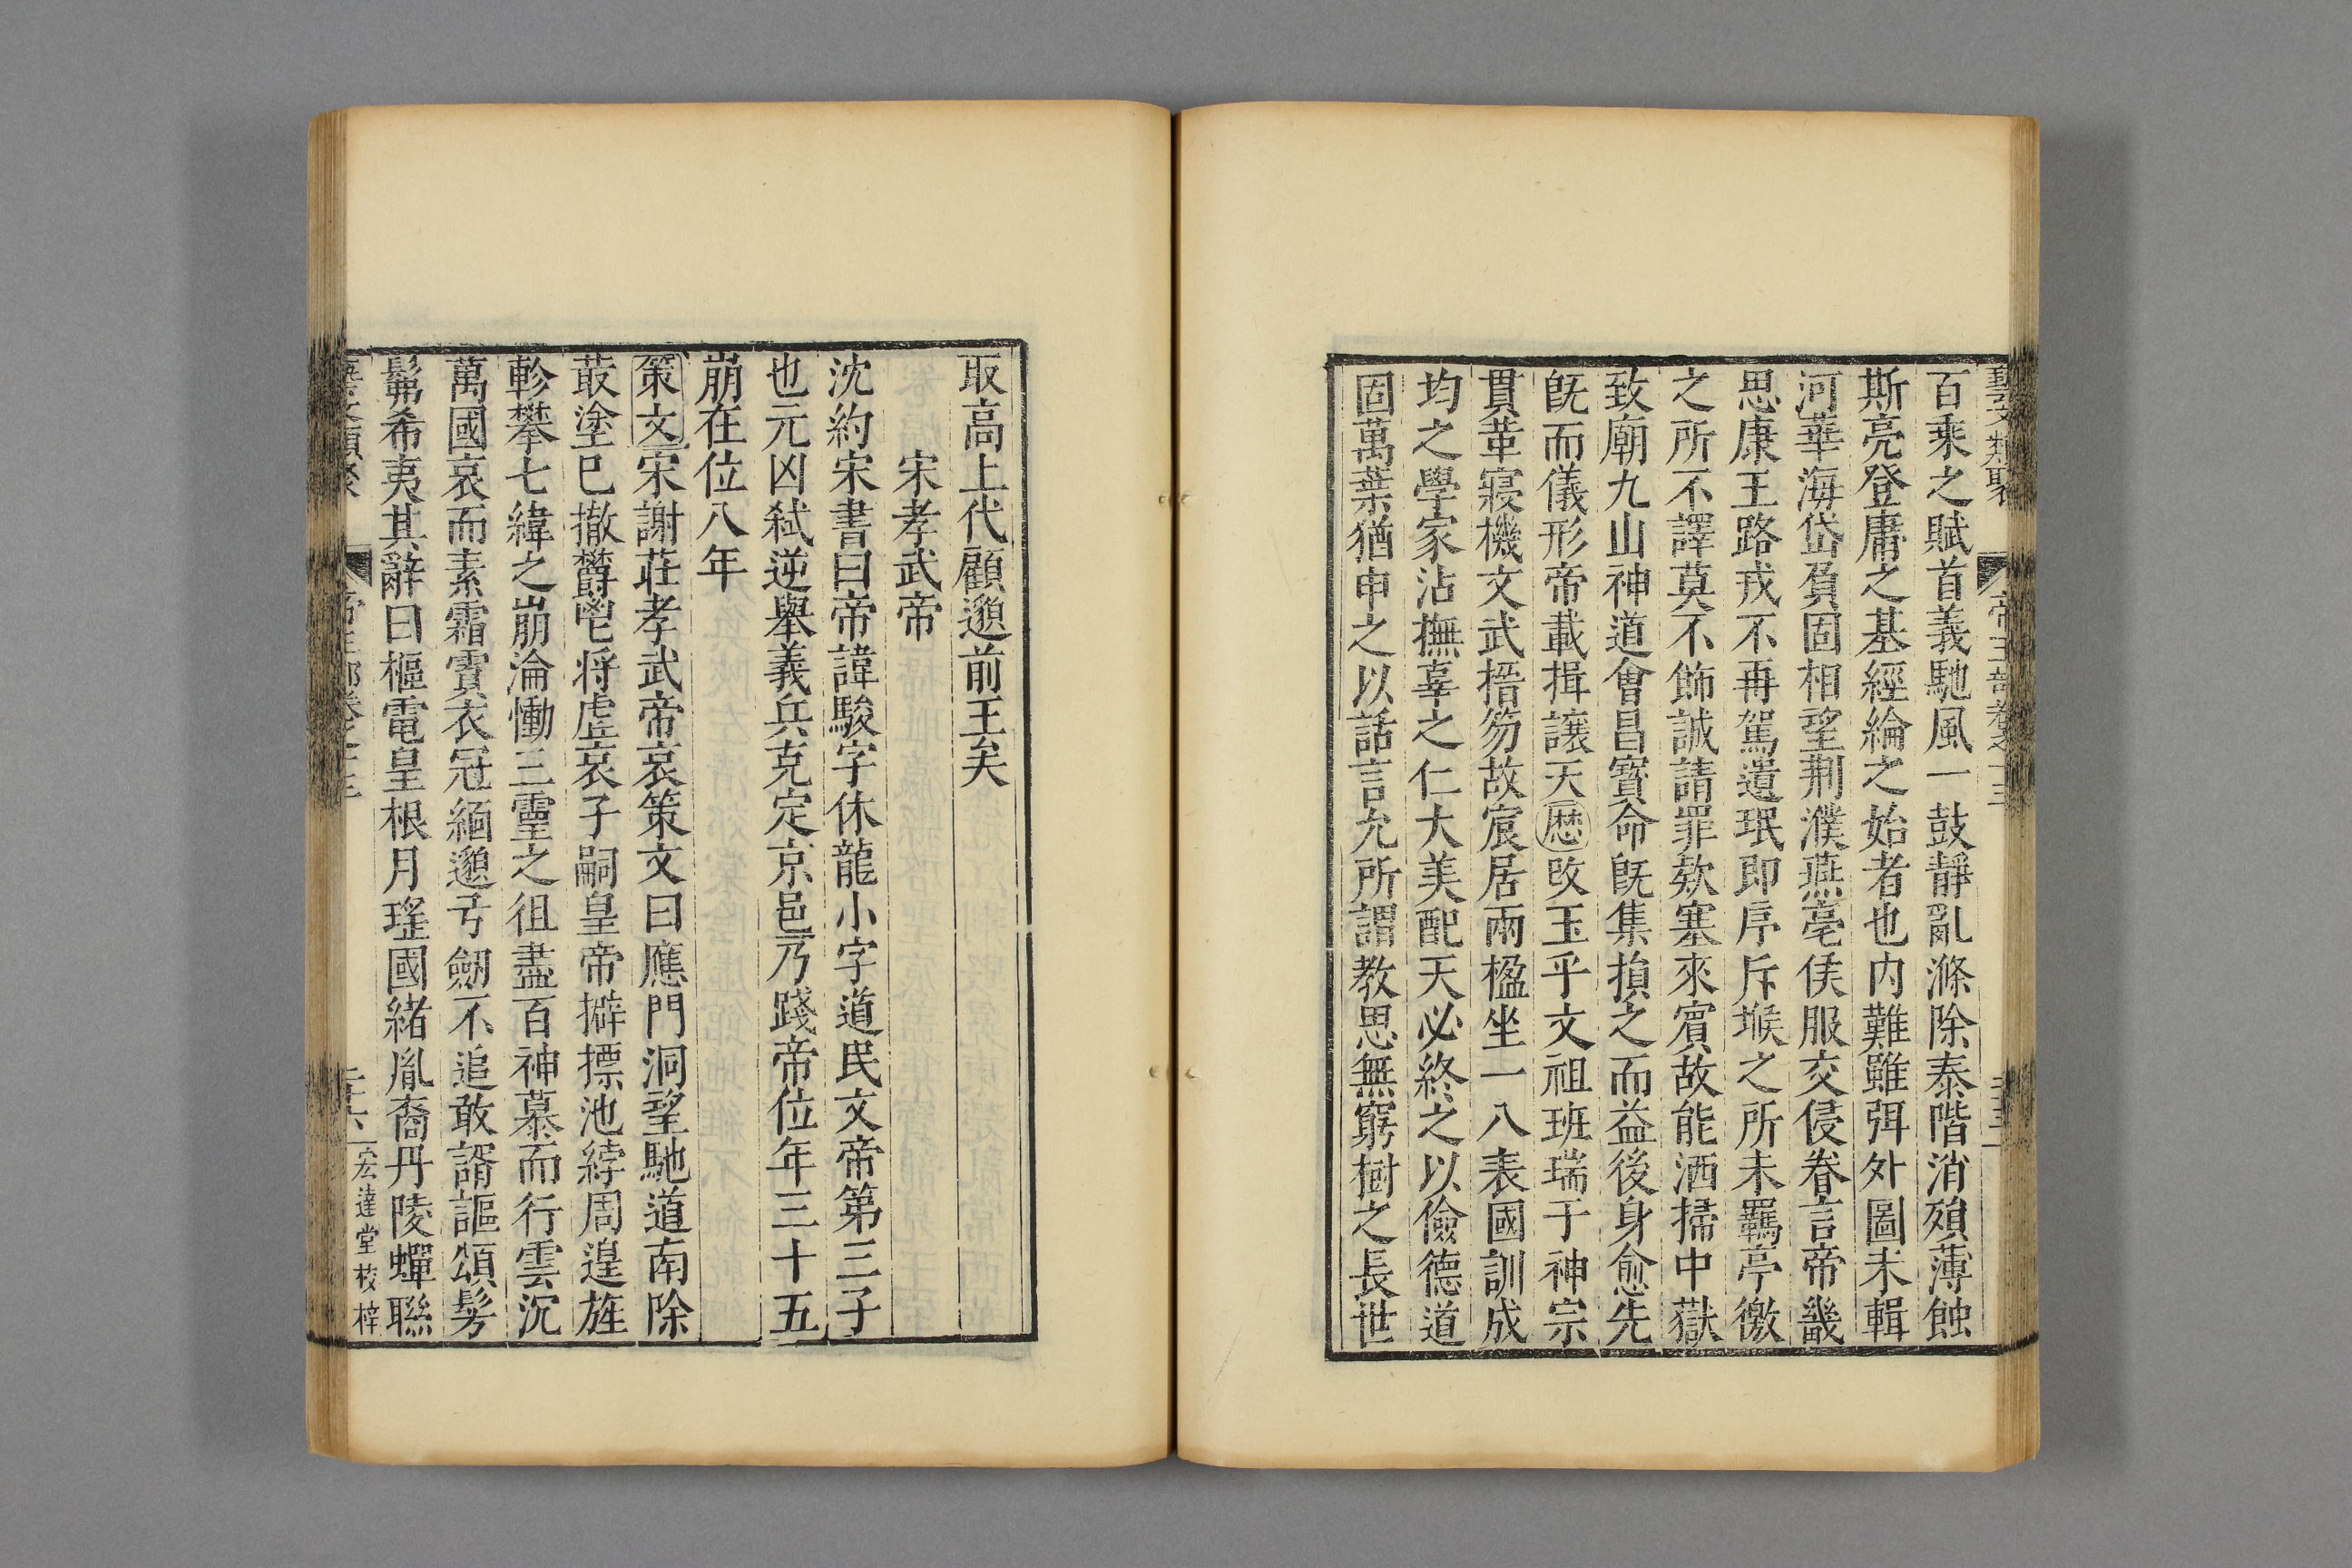 藝文類聚 帝王部卷之十三
百乘之賦首義馳風一鼓靜亂滌除泰階消殞薄蝕
斯亮登庸之基經綸之始者也内難雖弭外圖未輯
河華海岱負固相望荆濮燕亳侯服交侵眷言帝畿
思康王路戎不再駕遺珉即序斥堠之所未羈亭徼
之所不譯莫不飾誠請罪欵塞來賓故能洒掃中嶽
致廟九山神道會昌寳命旣集損之而益後身愈先
旣而儀形帝載揖讓天歴攺玉乎文祖班瑞于神宗
貫革寢機文武搢笏故宸居兩楹坐一八表國訓成
均之學家沾撫辜之仁大美配天必終之以儉德道
固萬葉猶申之以話言允所謂教思無窮樹之長世
取高上代顧邈前王矣
宋孝武帝
沈約宋書曰帝諱駿字休龍小字道民文帝第三子
也元凶弑逆舉義兵克定京邑乃踐帝位年三十五
崩在位八年
策文宋謝莊孝武帝哀策文曰應門洞望馳道南除
菆塗巳撤欝鬯将虗哀子嗣皇帝擗摽池綍周遑旌
軫攀七緯之崩淪慟三靈之徂盡百神慕而行雲沉
萬國哀而素霜霣衣冠緬邈弓劒不追敢諝謳頌髣
髴希夷其辭曰樞電皇根月瑤國緒胤裔丹陵蟬聯
藝文類聚 帝王部卷之十三 三十六 宏達堂校梓